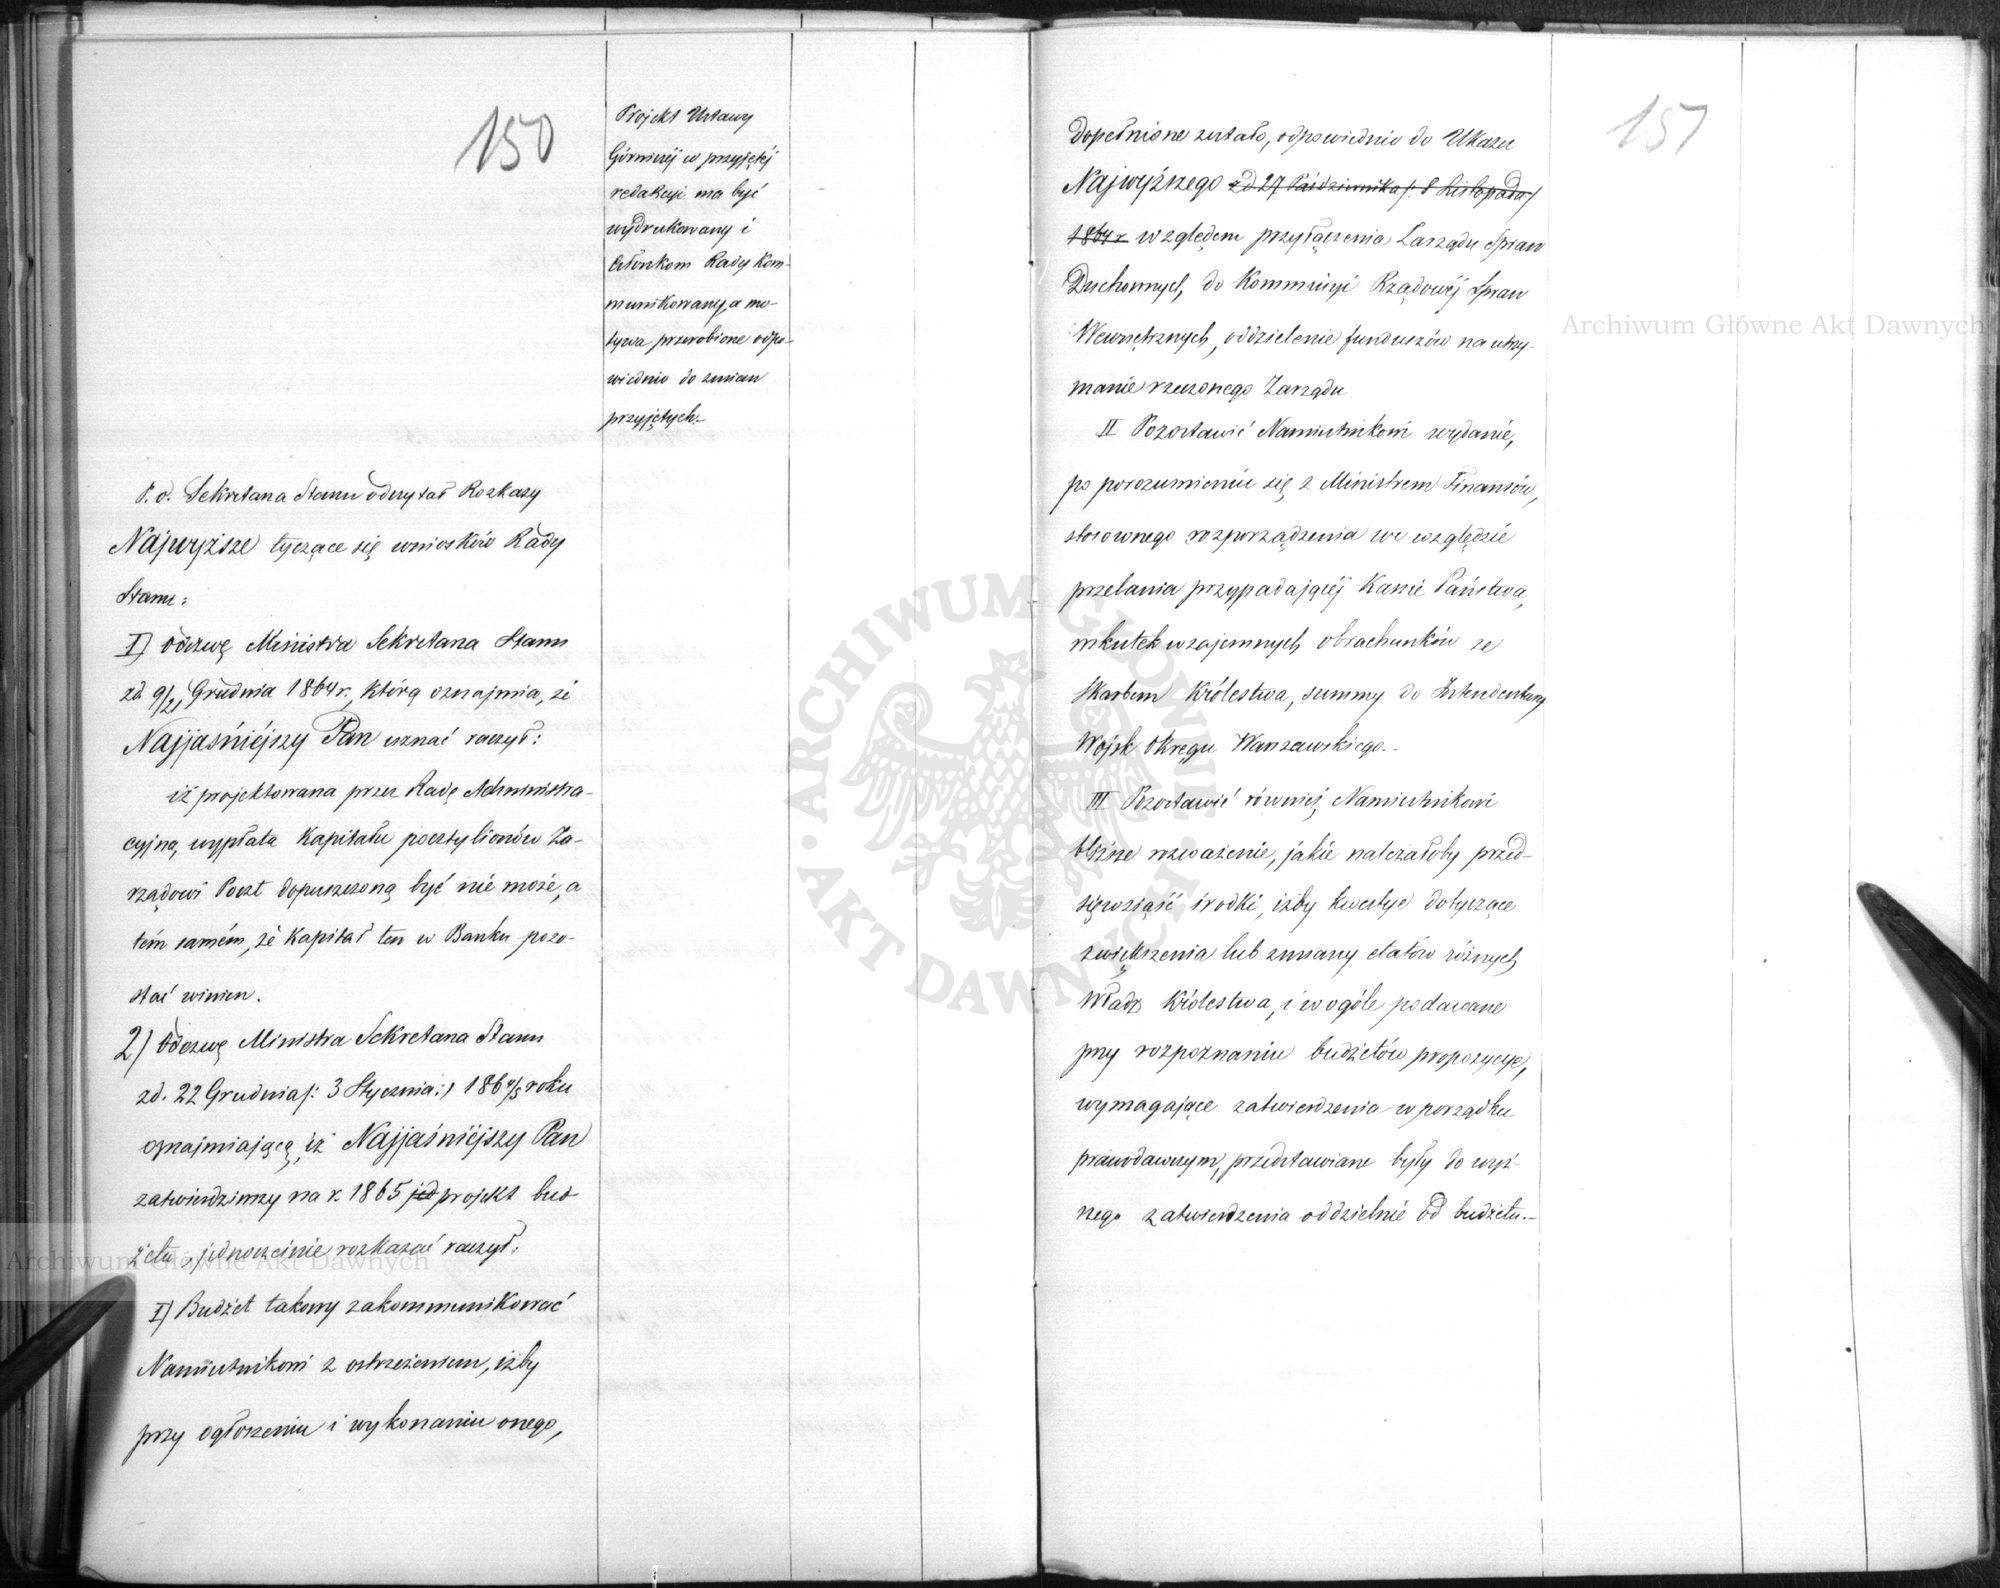 150
Projekt Ustawy
Górniczéj w przyjętéj
redakcyi ma być
wydrukowany i
Członkom Rady kom-
munikowany, a mo-
tywa przerobione odpo-
wiednio do zmian
przyjętych.-
P. o. Sekretarza Stanu odczytał Rozkazy
Najwyższe tyczące się wniosków Rady
Stanu:
I) Odezwę Ministra Sekretarza Stanu
zd. 9/21 Grudnia 1864 r., którą oznajmia, że
Najjaśniéjszy Pan uznać raczył:
iż projektowana przez Radę Administra-
cyjną, wypłata kapitału pocztylionów Za-
rządowi Poczt dopuszczoną być nie może, a
tém samém, że kapitał ten w Banku pozo-
stać winien.
2) Odezwę Ministra Sekretarza Stanu
zd. 22 Grudnia /: 3 Stycznia :/ 1864/5 roku
oznajmiającą, iż Najjaśniéjszy Pan
zatwierdziwszy na r. 1865 jed projekt bud-
żetu, jednocześnie rozkazać raczył:
I) Budżet takowy zakommunikować
Namiestnikowi z ostrzeżeniem, iżby
przy ogłoszeniu i wykonaniu onego,
151
dopełnione zostało, odpowiednio do Ukazu
Najwyższego zd. 27 Października /: 8 Listopada /
1864 r. względem przyłączenia Zarządu Spraw
Duchownych, do Kommissyi Rządowéj Spraw
Wewnętrznych, oddzielenie funduszów na utrzy-
manie rzeczonego Zarządu.
II Pozostawić Namiestnikowi wydanie,
po porozumieniu się z Ministrem Finansów,
stosownego rozporządzenia we względzie
przelania przypadającéj Kassie Państwa,
wskutek wzajemnych obrachunków ze
Skarbem Królestwa, summy do Intendentury
Wojsk Okręgu Warszawskiego.-
III Pozostawić również Namiestnikowi
bliższe rozważenie, jakie należałoby przed-
sięwziąść środki, iżby kwestye dotyczące
zwiększenia lub zmiany etatów różnych
Władz Królestwa, i w ogóle podawane
przy rozpoznaniu budżetów propozycye,
wymagające zatwierdzenia w porządku
prawodawczym, przedstawiane były do wyż-
szego zatwierdzenia oddzielnie od budżetu.-
Archiwum Główne Akt Dawnych
ARCHIWUM GŁÓWNE AKT DAWNYCH
Archiwum Główne Akt Dawnych